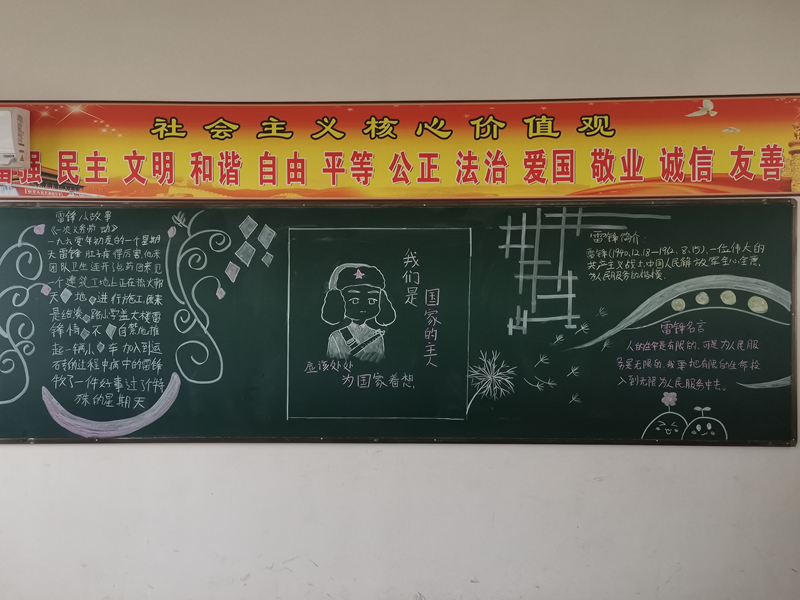 社会主义核心价值观
强 民主 文明 和谐 自由 平等 公正 法治 爱国 敬业 诚信 友善
雷锋小故事
《一次义务劳动》
一九六零年初夏的一个星期
天雷锋肚子疼得厉害,他来
团队卫生连开了些药回来,见
一个建筑工地上正在热火朝
天 地 进行施工,原来
是给 小学盖大楼雷
锋情 不 自禁地推
起一辆小 车 加入到运
砖的过程中病中的雷锋
做了一件好事过了个特
殊的星期天
我们是
国家的主人
应该处处
为国家着想
雷锋简介
雷锋(1940.12.18—1962.8.15),一位伟大的
共产主义战士中国人民解放军全心全意
为人民服务的楷模.
雷锋名言
人的生命是有限的,可是为人民服
务是无限的,我要把有限的生命投
入到无限为人民服务中去。